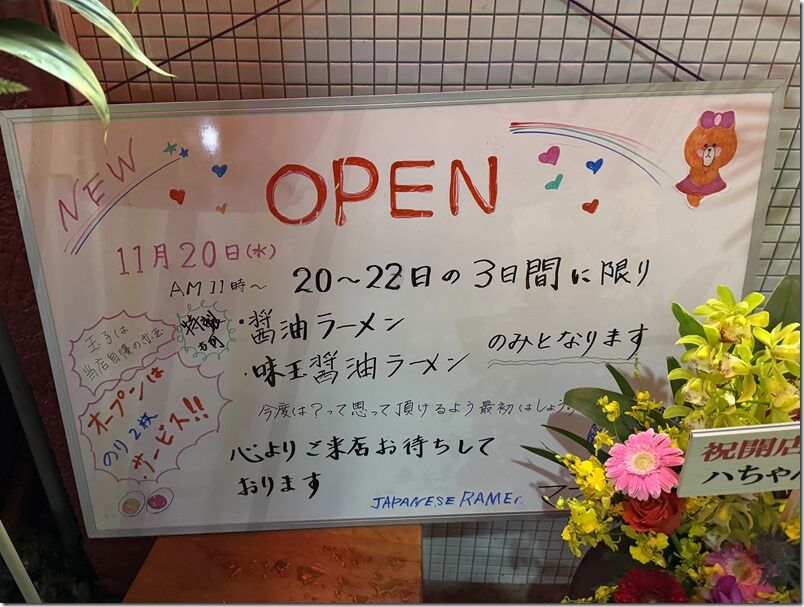 NEW
OPEN
11月20日(水)
AM 11時～
20～22日の3日間に限り
・醤油ラーメン
・味玉醤油ラーメン
のみとなります
玉子は
当店自慢の
オープンは
のり2枚
サービス!!
今度は?って思って頂けるよう最初はしょうゆ
心よりご来店お待ちして
おります
JAPANESE RAMEN
祝開店
ハちゃん